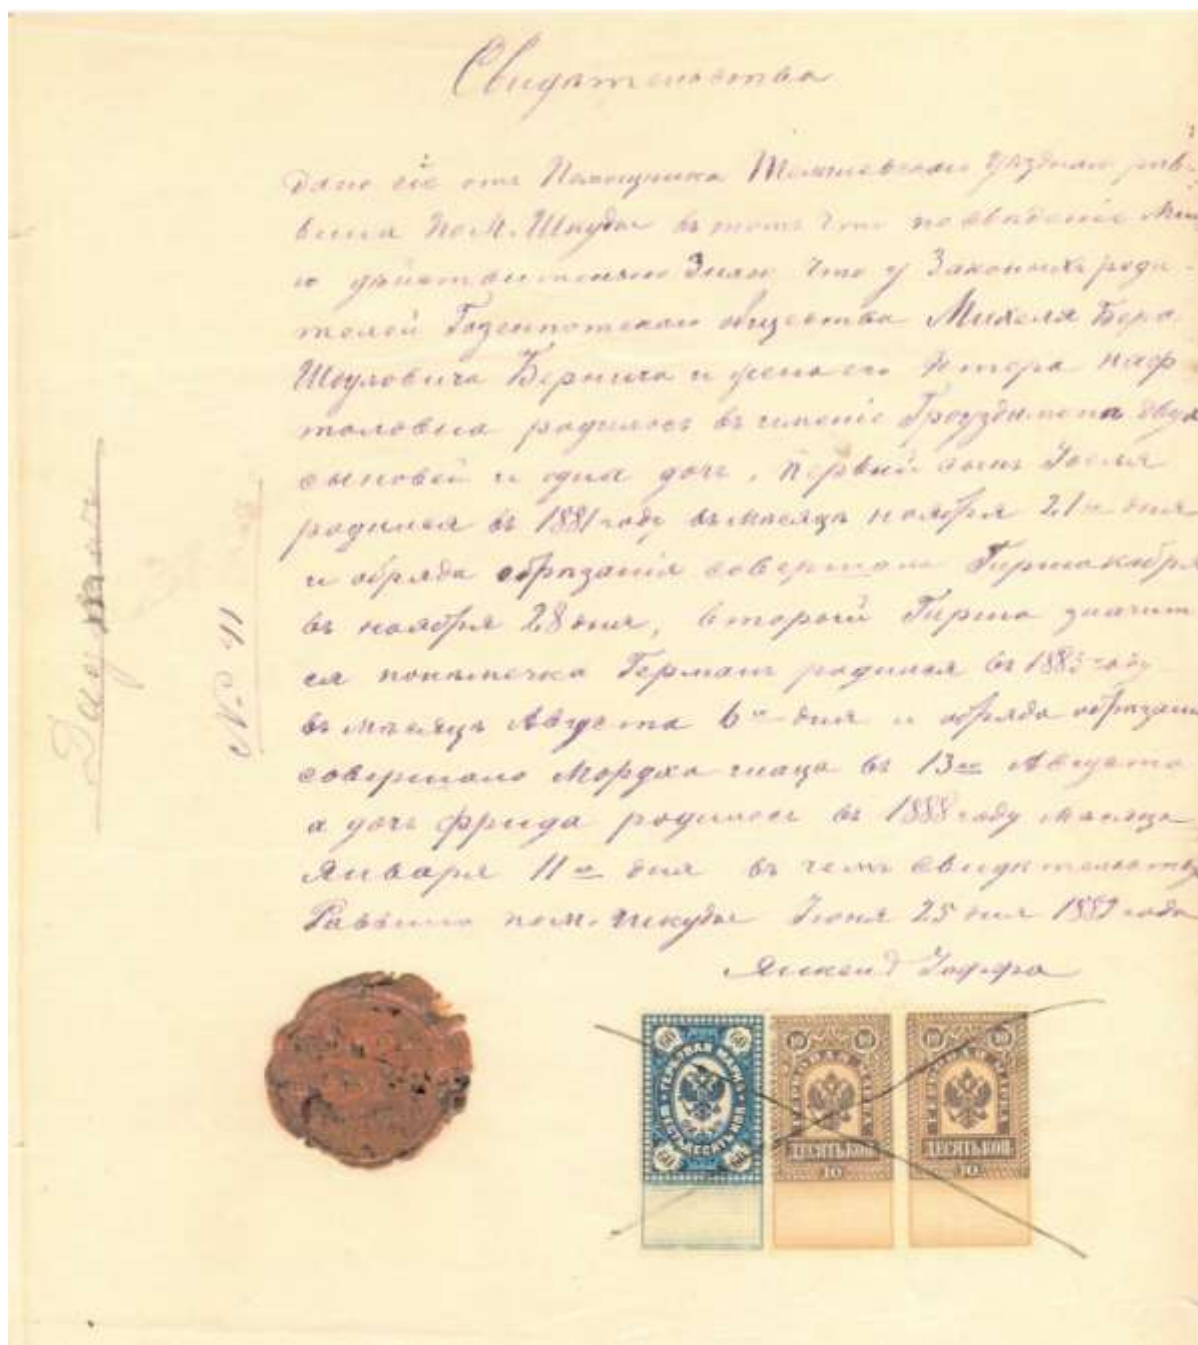 Свидѣтельство
Дано сіе отъ Помощника Тельшевскаго Уѣзднаго рав-
вина по М. Шкуды въ томъ что по сведеніе
и дѣйствительно Знаю что у Законныхъ роди-
телей Газенпотскаго общества Михеля Бера
Шоуловича Бернича и жена его наф
толовна родилось въ имение двухъ
сыновей и одна дочь. первый сынъ
родился въ 1881 году въ мѣсяцъ ноября 21го дня
и обряда обрѣзанія совершала
въ ноября 28 дня, второй Гирша значит
ся Германъ родился въ 1883 году
въ мѣсяцъ Августа 6го дня и обряда обрѣзанія
совершало Мордхо въ 13го Августа
а дочь Фрида родилось въ 1888 году мѣсяца
Января 11го дня въ чемъ свидѣтельствую
Раввинъ пом. Шкуды Іюня 25 дня 1889 года
Іоффа
№ 41
60 60
ГЕРБОВАЯ МАРКА
ШЕСТЬДЕСЯТЪ КОП
60 60
10 10
ГЕРБОВАЯ МАРКА
ДЕСЯТЬ КОП.
10
10 10
ГЕРБОВАЯ МАРКА
ДЕСЯТЬ КОП.
10